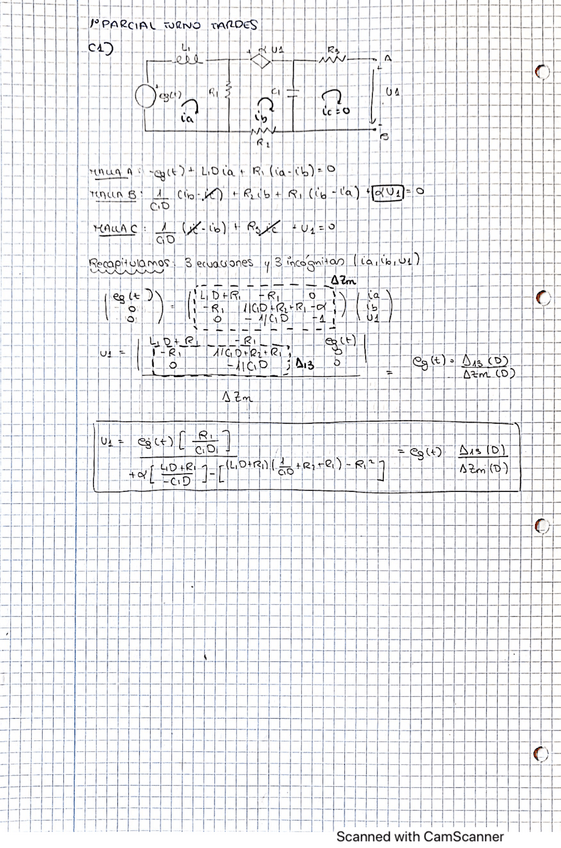 1º PARCIAL TURNO TARDES
C1)
L1 + αU1 R3 A
eg(t) R1 C1 U1
ia ib ic=0
R2 B
MALLA A: -eg(t) + L1Dia + R1 (ia-ib)=0
MALLA B: 1/C1D (ib-ic) + R2ib + R1 (ib-ia) + αU1 = 0
MALLA C: 1/C1D (ic-ib) + R3ic + U1=0
Recapitulamos: 3 ecuaciones y 3 incógnitas (ia, ib, U1)
ΔZm
eg(t) L1D+R1 -R1 0 ia
0 = -R1 1/C1D+R2+R1 -α ib
0 0 -1/C1D -1 U1
L1D+R1 -R1 eg(t)
U1 = -R1 1/C1D+R2+R1 0
0 -1/C1D Δ13 0 = eg(t) · Δ13(D)/ΔZm(D)
ΔZm
U1 = eg(t) [R1/C1D] = eg(t) Δ13(D)/ΔZm(D)
+α[L1D+R1/-C1D] - [(L1D+R1)(1/C1D+R2+R1) - R1²]
Scanned with CamScanner